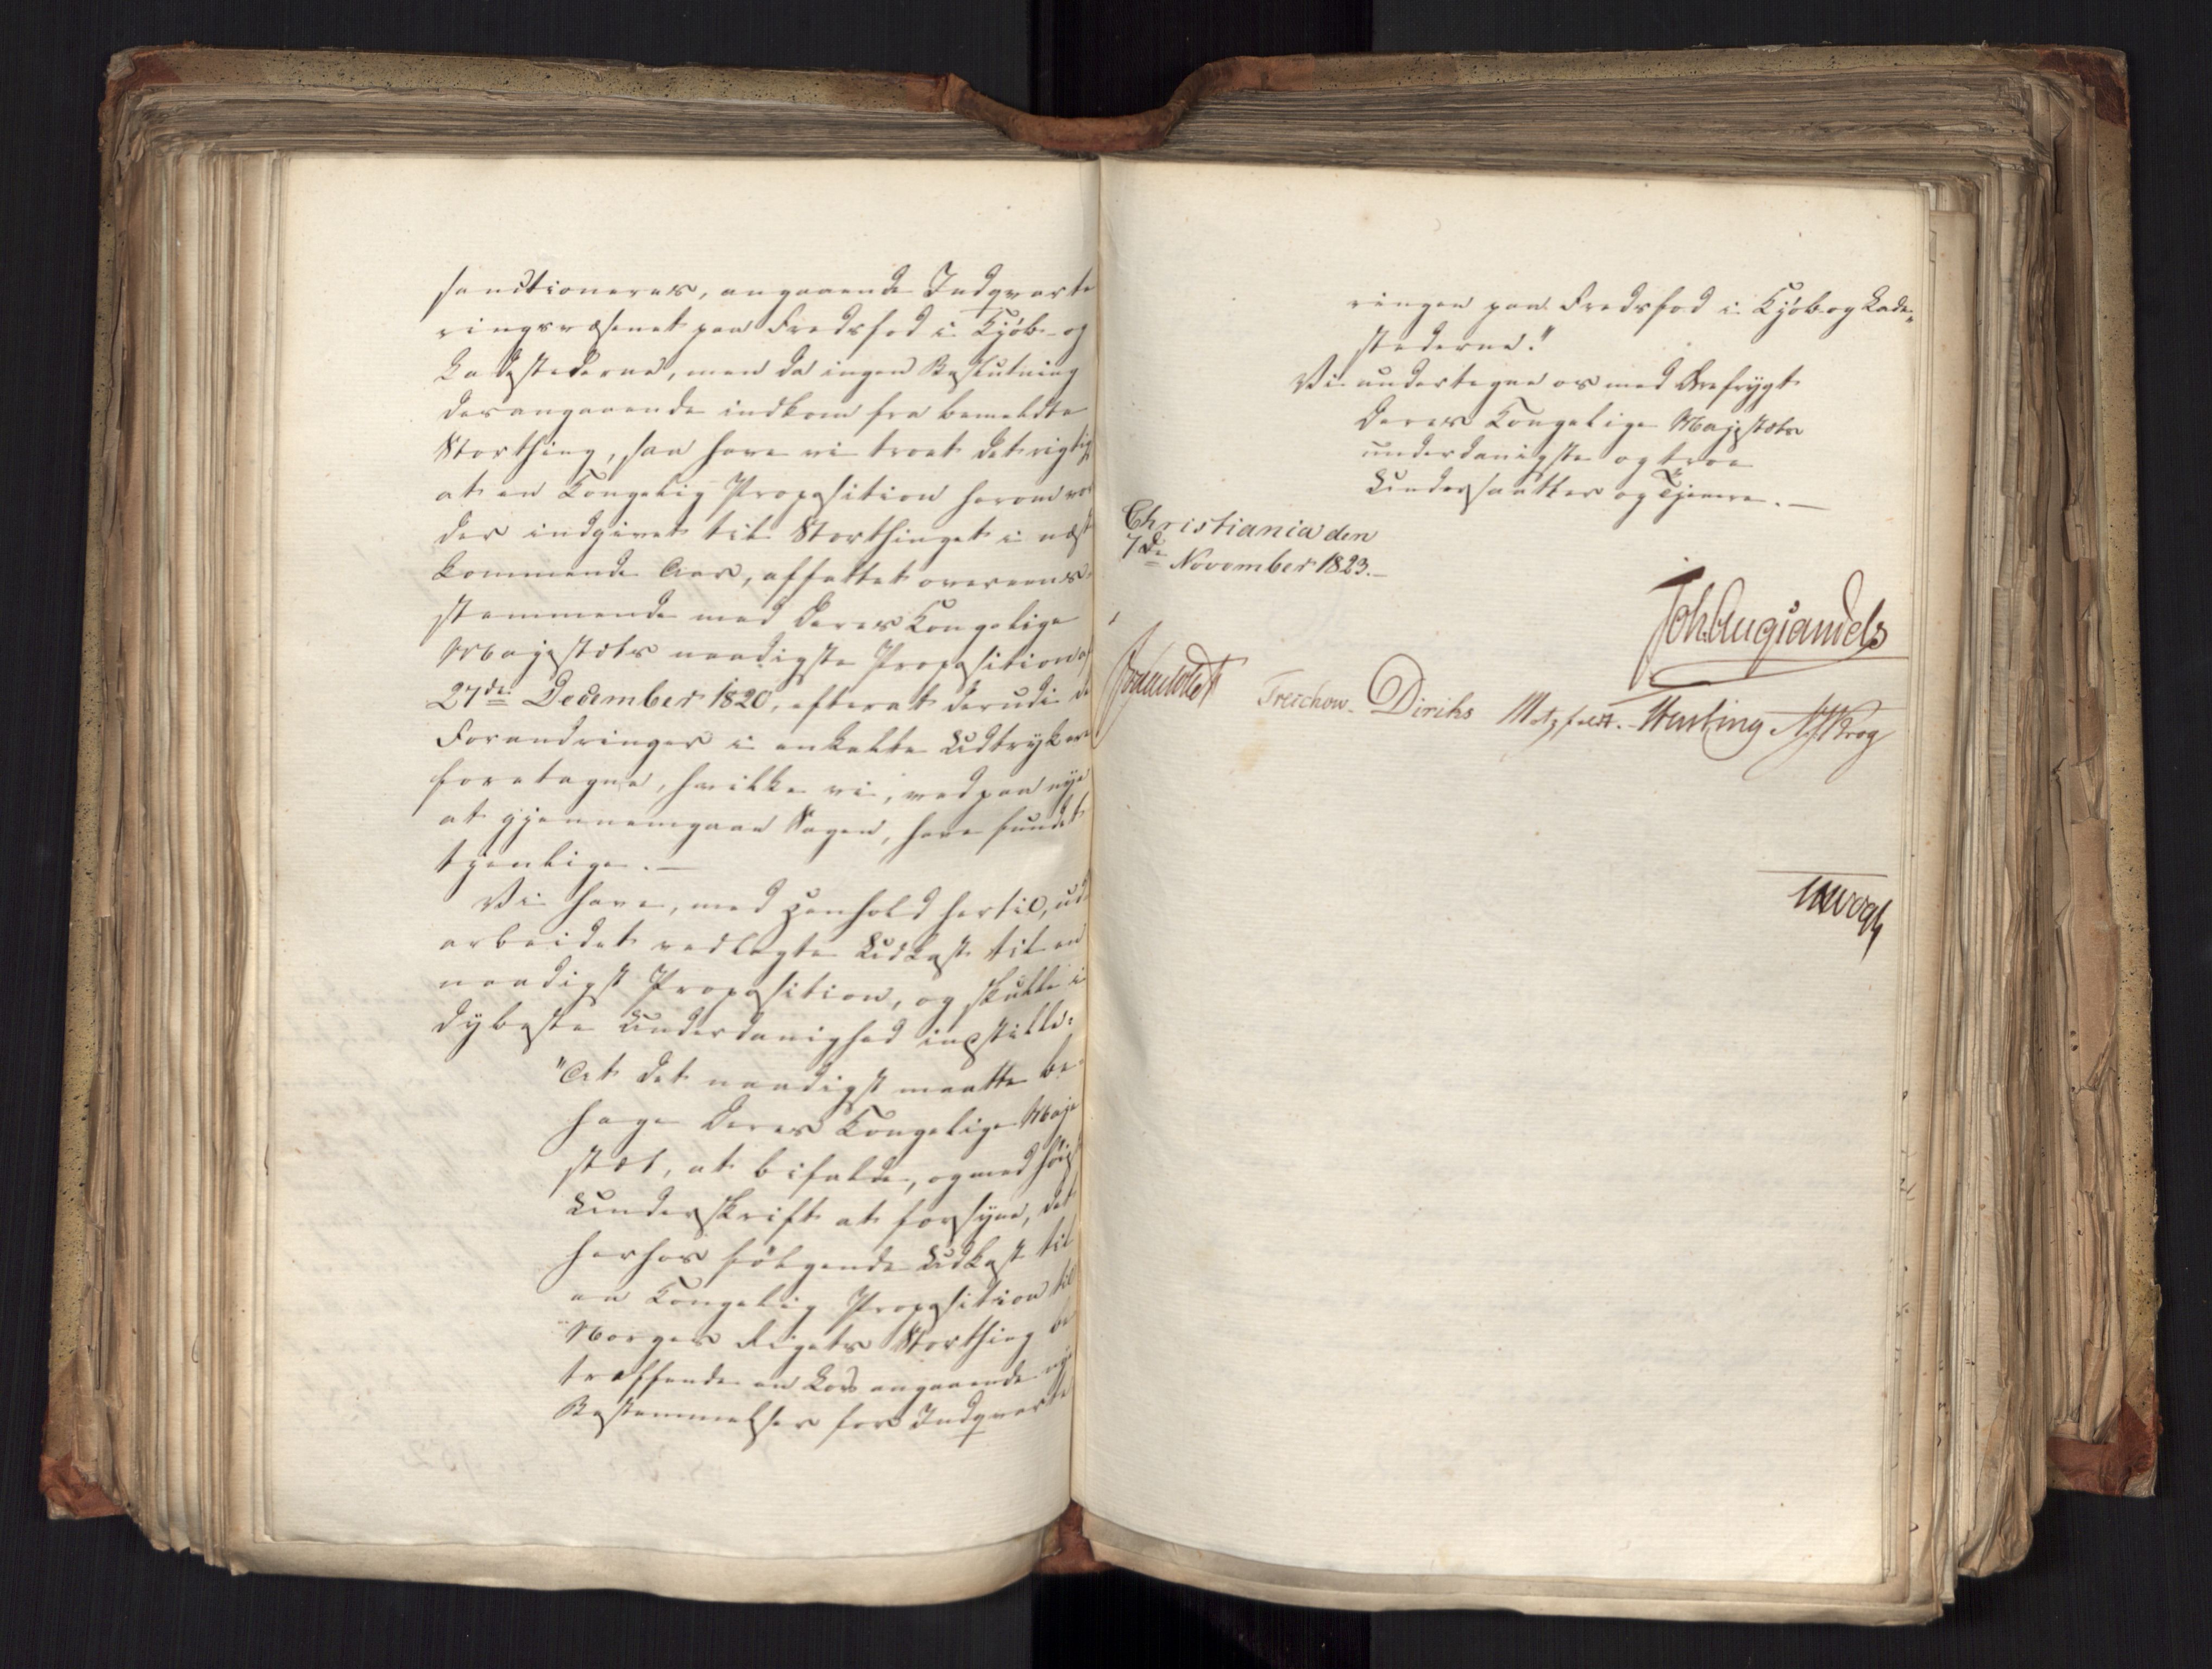 sanctioneres, angaaende Indqvarte
ringsvæsenet paa Fredsfod i Kjöb- og
Ladestederne, men da ingen Beslutning
desangaaende indkom fra bemeldte
Storthing, saa have vi troet det rigtigst
at en Kongelig Proposition herom vor
der indgivet til Storthinget i næst
kommende Aar, affattet overeens
stemmende med Deres Kongelige
Majestæts naadigste Proposition af
27de December 1820, efterat derudi de
Forandringer i enkelte Udtryk ere
foretagne, hvilke vi, ved paa nye
at gjennemgaae Sagen, have fundet
tjenlige.—
Vi have, med Henhold hertil, ud
arbeidet vedlagte Udkast til en
naadigst Proposition, og skulle i
dybeste Underdanighed indstille:
"At det naadigst maatte be-
hage Deres Kongelige Maje
stæt, at bifalde, og med höist
Underskrift at forsyne, det
herhos fölgende Udkast til
en Kongelig Proposition til
Norges Riges Storthing be
træffende en Lov angaaende nye
Bestemmelser for Indqvarte
ringen paa Fredsfod i Kjöb- og Lade-
stederne."
Vi undertegne os med Ærefrygt
Deres Kongelige Majestæts
underdanigste og troe
Undersaatter og Tjenere.—
Christiania den
7de November 1823.—
Joh. Aug. Sandels
Sommerfeldt Treschow. Diriks Motzfeldt. Hesting Krog
Vogt